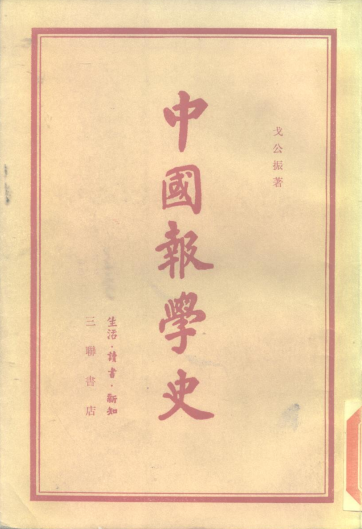 戈公振著
中國報學史
生活·讀書·新知
三聯書店